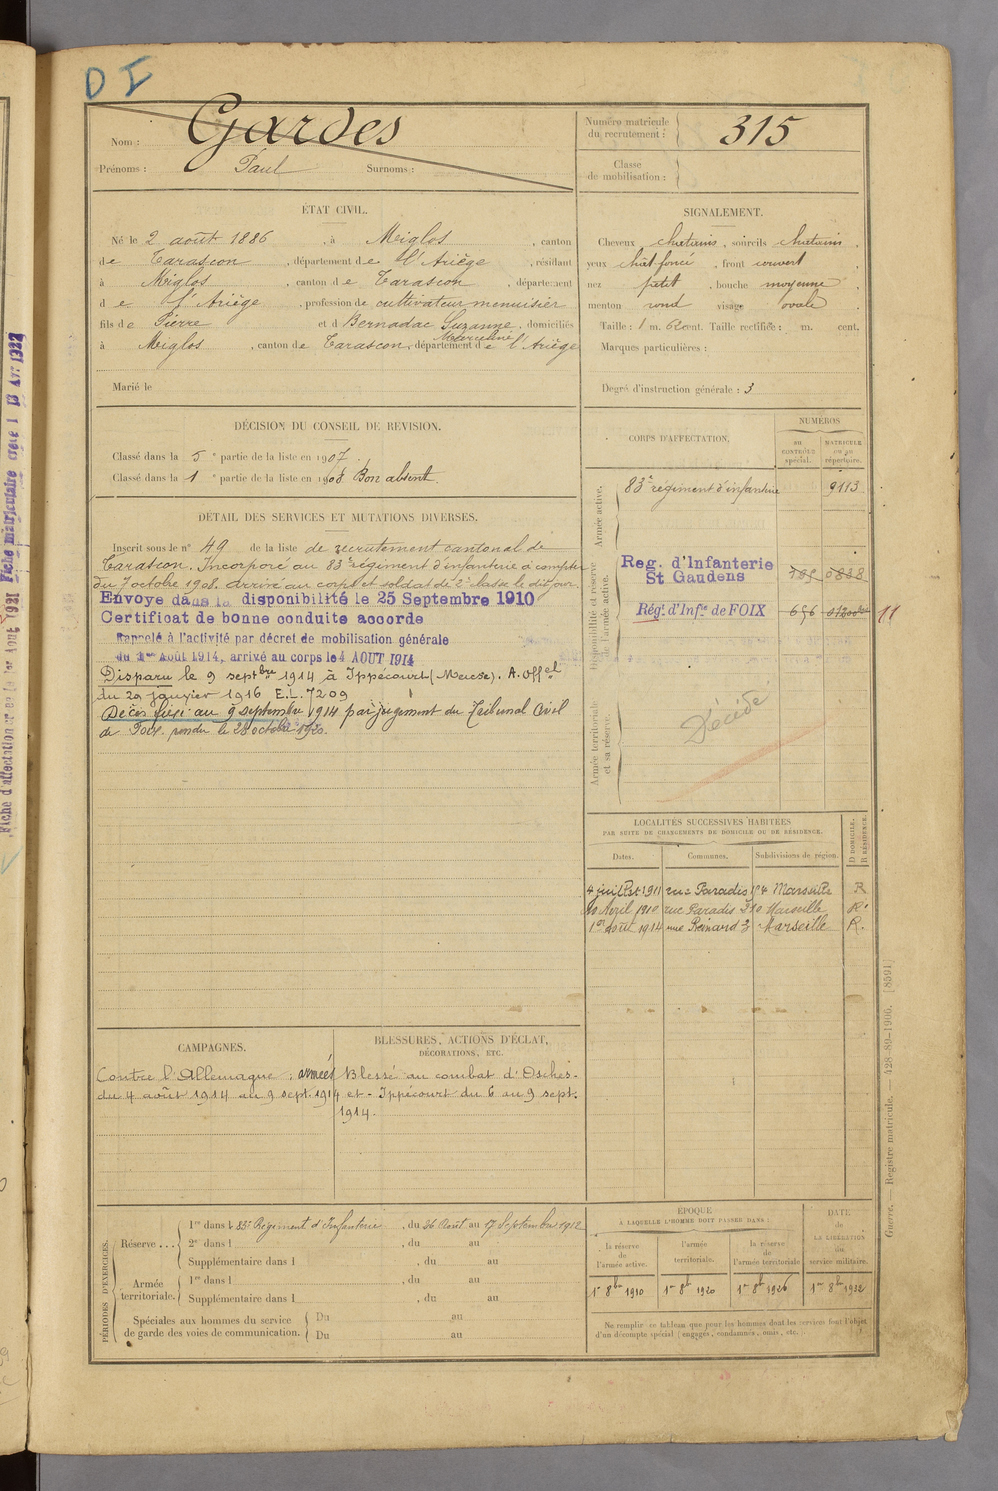 D I
Nom : Gardes
Prénoms : Paul Surnoms :
Numéro matricule du recrutement : 315
Classe de mobilisation :
ÉTAT CIVIL.
Né le 2 août 1886, à Miglos, canton
de Tarascon, département de l'Ariège, résidant
à Miglos, canton de Tarascon, département
de l'Ariège, profession de cultivateur menuisier
fils de Pierre et d Bernadac Suzanne, domiciliés
à Miglos, canton de Tarascon, département de l'Ariège
Marié le
SIGNALEMENT.
Cheveux chatains, sourcils chatains,
yeux chat. foncé, front couvert
nez petit, bouche moyenne,
menton rond visage ovale
Taille : 1 m. 62 cent. Taille rectifiée : m. cent.
Marques particulières :
Degré d'instruction générale : 3
DÉCISION DU CONSEIL DE REVISION.
Classé dans la 5e partie de la liste en 1907.
Classé dans la 1e partie de la liste en 1908 Bon absent
DÉTAIL DES SERVICES ET MUTATIONS DIVERSES.
Inscrit sous le n° 49 de la liste de recrutement cantonal de
Tarascon. Incorporé au 83e régiment d'infanterie à compter
du 7 octobre 1908. Arrivé au corps et soldat de 2e classe le dit jour.
Envoyé dans la disponibilité le 25 Septembre 1910
Certificat de bonne conduite accorde
Rappelé à l'activité par décret de mobilisation générale
du 1er Août 1914, arrivé au corps le 4 AOUT 1914
Disparu le 9 septbre 1914 à Ippécourt (Meuse). A. Offel
du 29 janvier 1916 E.L. 7209
Décès fixé au 9 septembre 1914 par jugement du Tribunal Civil
de Foix rendu le 28 octobre 1920.
CORPS D'AFFECTATION,
NUMÉROS
AU CONTRÔLE spécial.
MATRICULE ou au répertoire.
Armée active.
83e régiment d'infanterie 9113
Disponibilité et réserve de l'armée active.
Reg. d'Infanterie
St Gaudens
Régt. d'Infie de FOIX 656
11
Armée territoriale et sa réserve.
Décédé
LOCALITÉS SUCCESSIVES HABITÉES
PAR SUITE DE CHANGEMENTS DE DOMICILE OU DE RÉSIDENCE.
Dates. Communes. Subdivisions de région. D DOMICILE. R RÉSIDENCE.
4 juillet 1911 rue Paradis Marseille R
Avril 1910 rue Paradis Marseille R
1er Août 1914 rue Reinard 3 Marseille R.
CAMPAGNES.
Contre l'Allemagne : armées
du 4 août 1914 au 9 sept. 1914
BLESSURES, ACTIONS D'ÉCLAT,
DÉCORATIONS, ETC.
Blessé au combat d'Osches-
et - Ippécourt du 6 au 9 sept.
1914.
PÉRIODES D'EXERCICES.
Réserve ...
1re dans l 83e Régiment d'Infanterie, du 26 Août au 17 Septembre 1912
2e dans l , du au
Supplémentaire dans l , du au
Armée territoriale.
1re dans l , du au
Supplémentaire dans l , du au
Spéciales aux hommes du service
de garde des voies de communication.
Du au
Du au
ÉPOQUE
À LAQUELLE L'HOMME DOIT PASSER DANS :
la réserve de l'armée active.
l'armée territoriale.
la réserve de l'armée territoriale
DATE de LA LIBÉRATION du service militaire.
1er 8bre 1910 1er 8bre 1920 1er 8bre 1926 1er 8bre 1932
Ne remplir ce tableau que pour les hommes dont les services font l'objet
d'un décompte spécial (engagés, condamnés, omis, etc.
Guerre. — Registre matricule. — 428-89-1906. [8591]